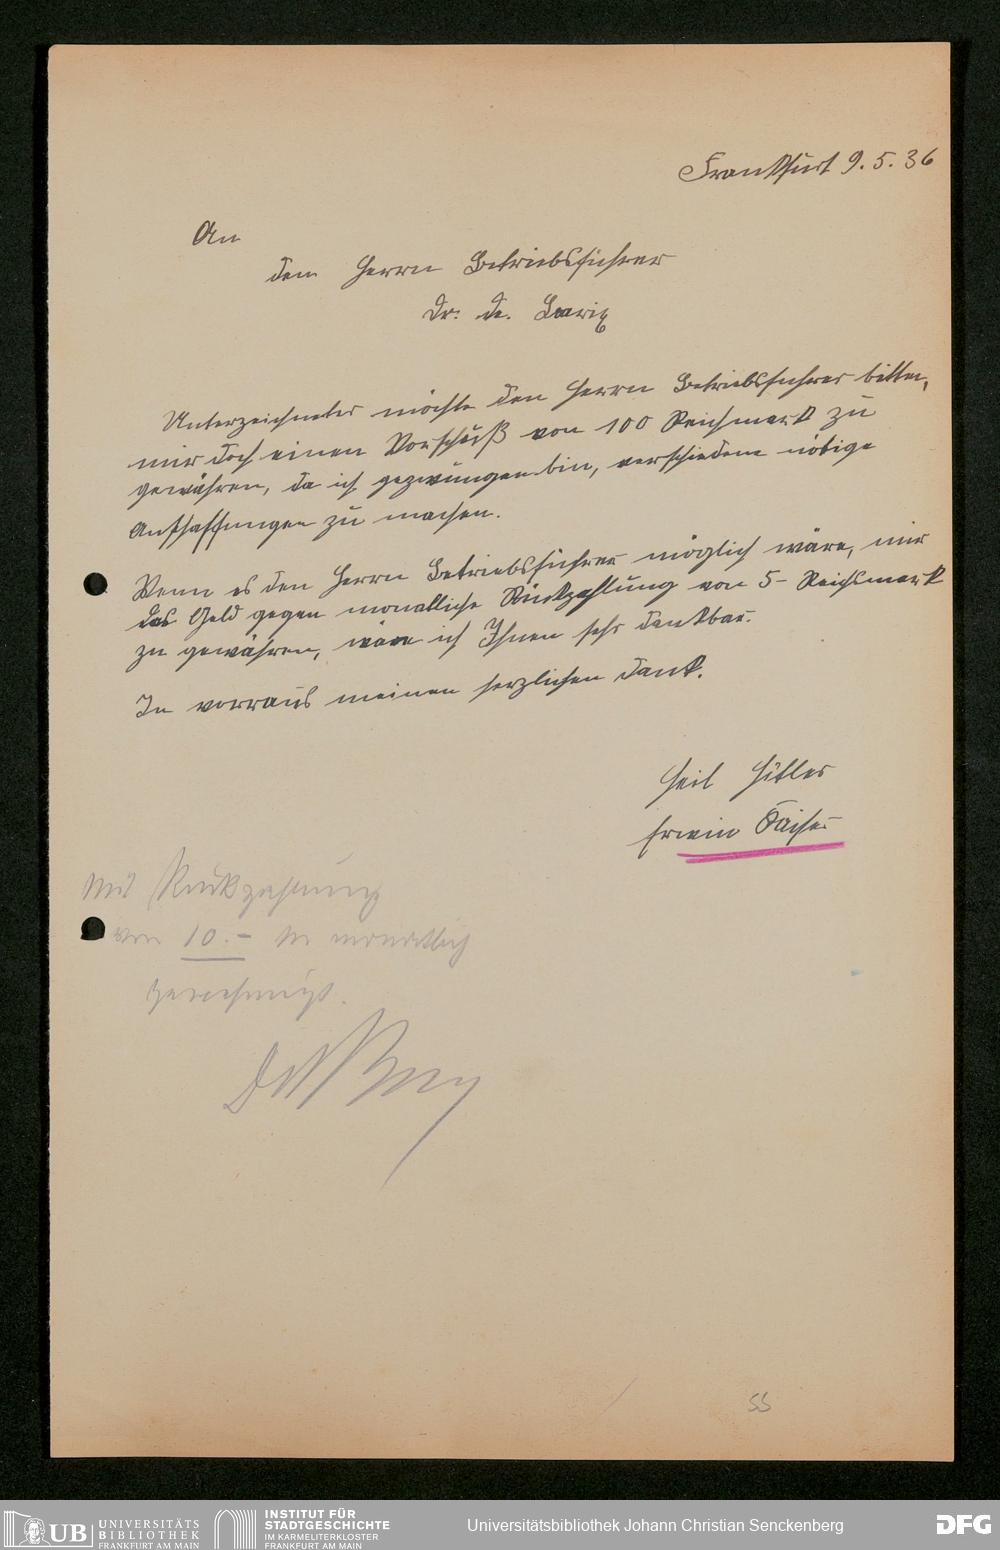 Frankfurt 9.5.36
An
den Herrn Betriebsführer
Dr. de. Bary
Unterzeichneter möchte den Herrn Betriebsführer bitten,
mir doch einen Vorschuß von 100 Reichmark zu
gewähren, da ich gezwungen bin, verschiedene nötige
Anschaffungen zu machen.
Wenn es den Herrn Betriebsführer möglich wäre, mir
das Geld gegen monatliche Rückzahlung von 5- Reichsmark
zu gewähren, wäre ich Ihnen sehr dankbar.
In vorraus meinen herzlichen Dank.
Heil Hitler
Erwin Kaiser
Mit Rückzahlung
von 10.- M monatlich
genehmigt.
de Bary
55
UB UNIVERSITÄTS
BIBLIOTHEK
FRANKFURT AM MAIN
INSTITUT FÜR
STADTGESCHICHTE
IM KARMELITERKLOSTER
FRANKFURT AM MAIN
Universitätsbibliothek Johann Christian Senckenberg
DFG